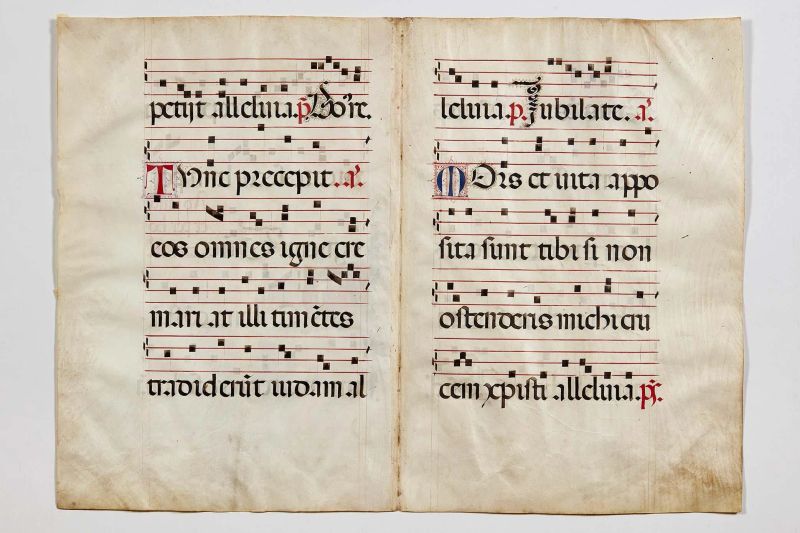 petijt alleluia. p̄ Do're.
Tunc precepit. a'.
eos omnes igne cre
mari at illi timẽtes
tradiderũt uidam al
leluia. p. Jubilate. a'.
Mors et uita appo
sita sunt tibi si non
ostenderis michi cru
cem xpisti alleluia. p̄s.